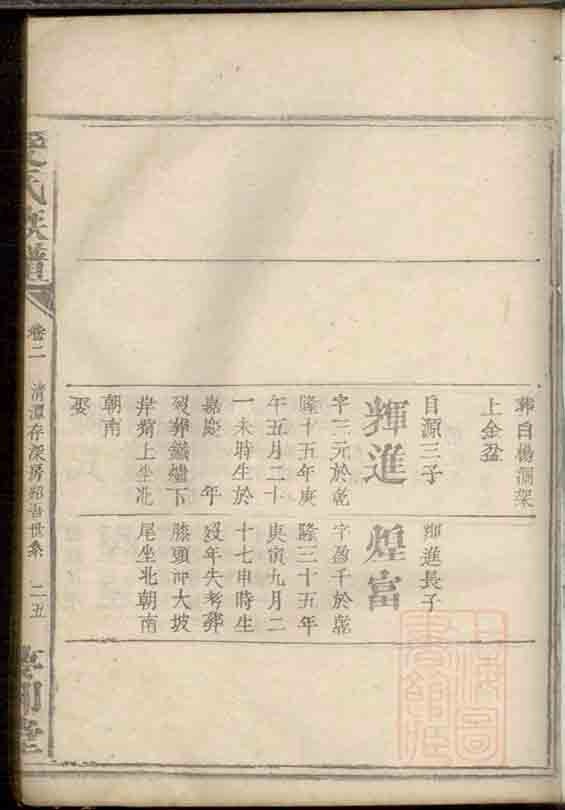 葬白楊澗架
上金盆
自源三子
輝進
字三元於乾
隆十五年庚
午五月二十
一未時生於
嘉慶 年
歿葬鐵爐下
岸塆上坐北
朝南
娶
輝進長子
煌富
字盈千於乾
隆三十五年
庚寅九月二
十七申時生
歿年失考葬
膝頭冲大坡
尾坐北朝南
氏族譜
卷二
清潭存深房紹吾世系
二五